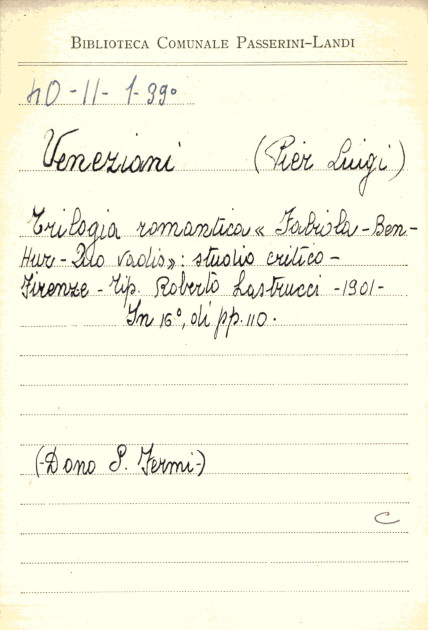 BIBLIOTECA COMUNALE PASSERINI-LANDI
40-11-1-39°
Veneziani (Pier Luigi)
Trilogia romantica « Fabiola - Ben-
Hur - Quo vadis»: studio critico -
Firenze - Tip. Roberto Lastrucci - 1901-
In 16°, di pp. 110.
(-Dono S. Fermi-)
C